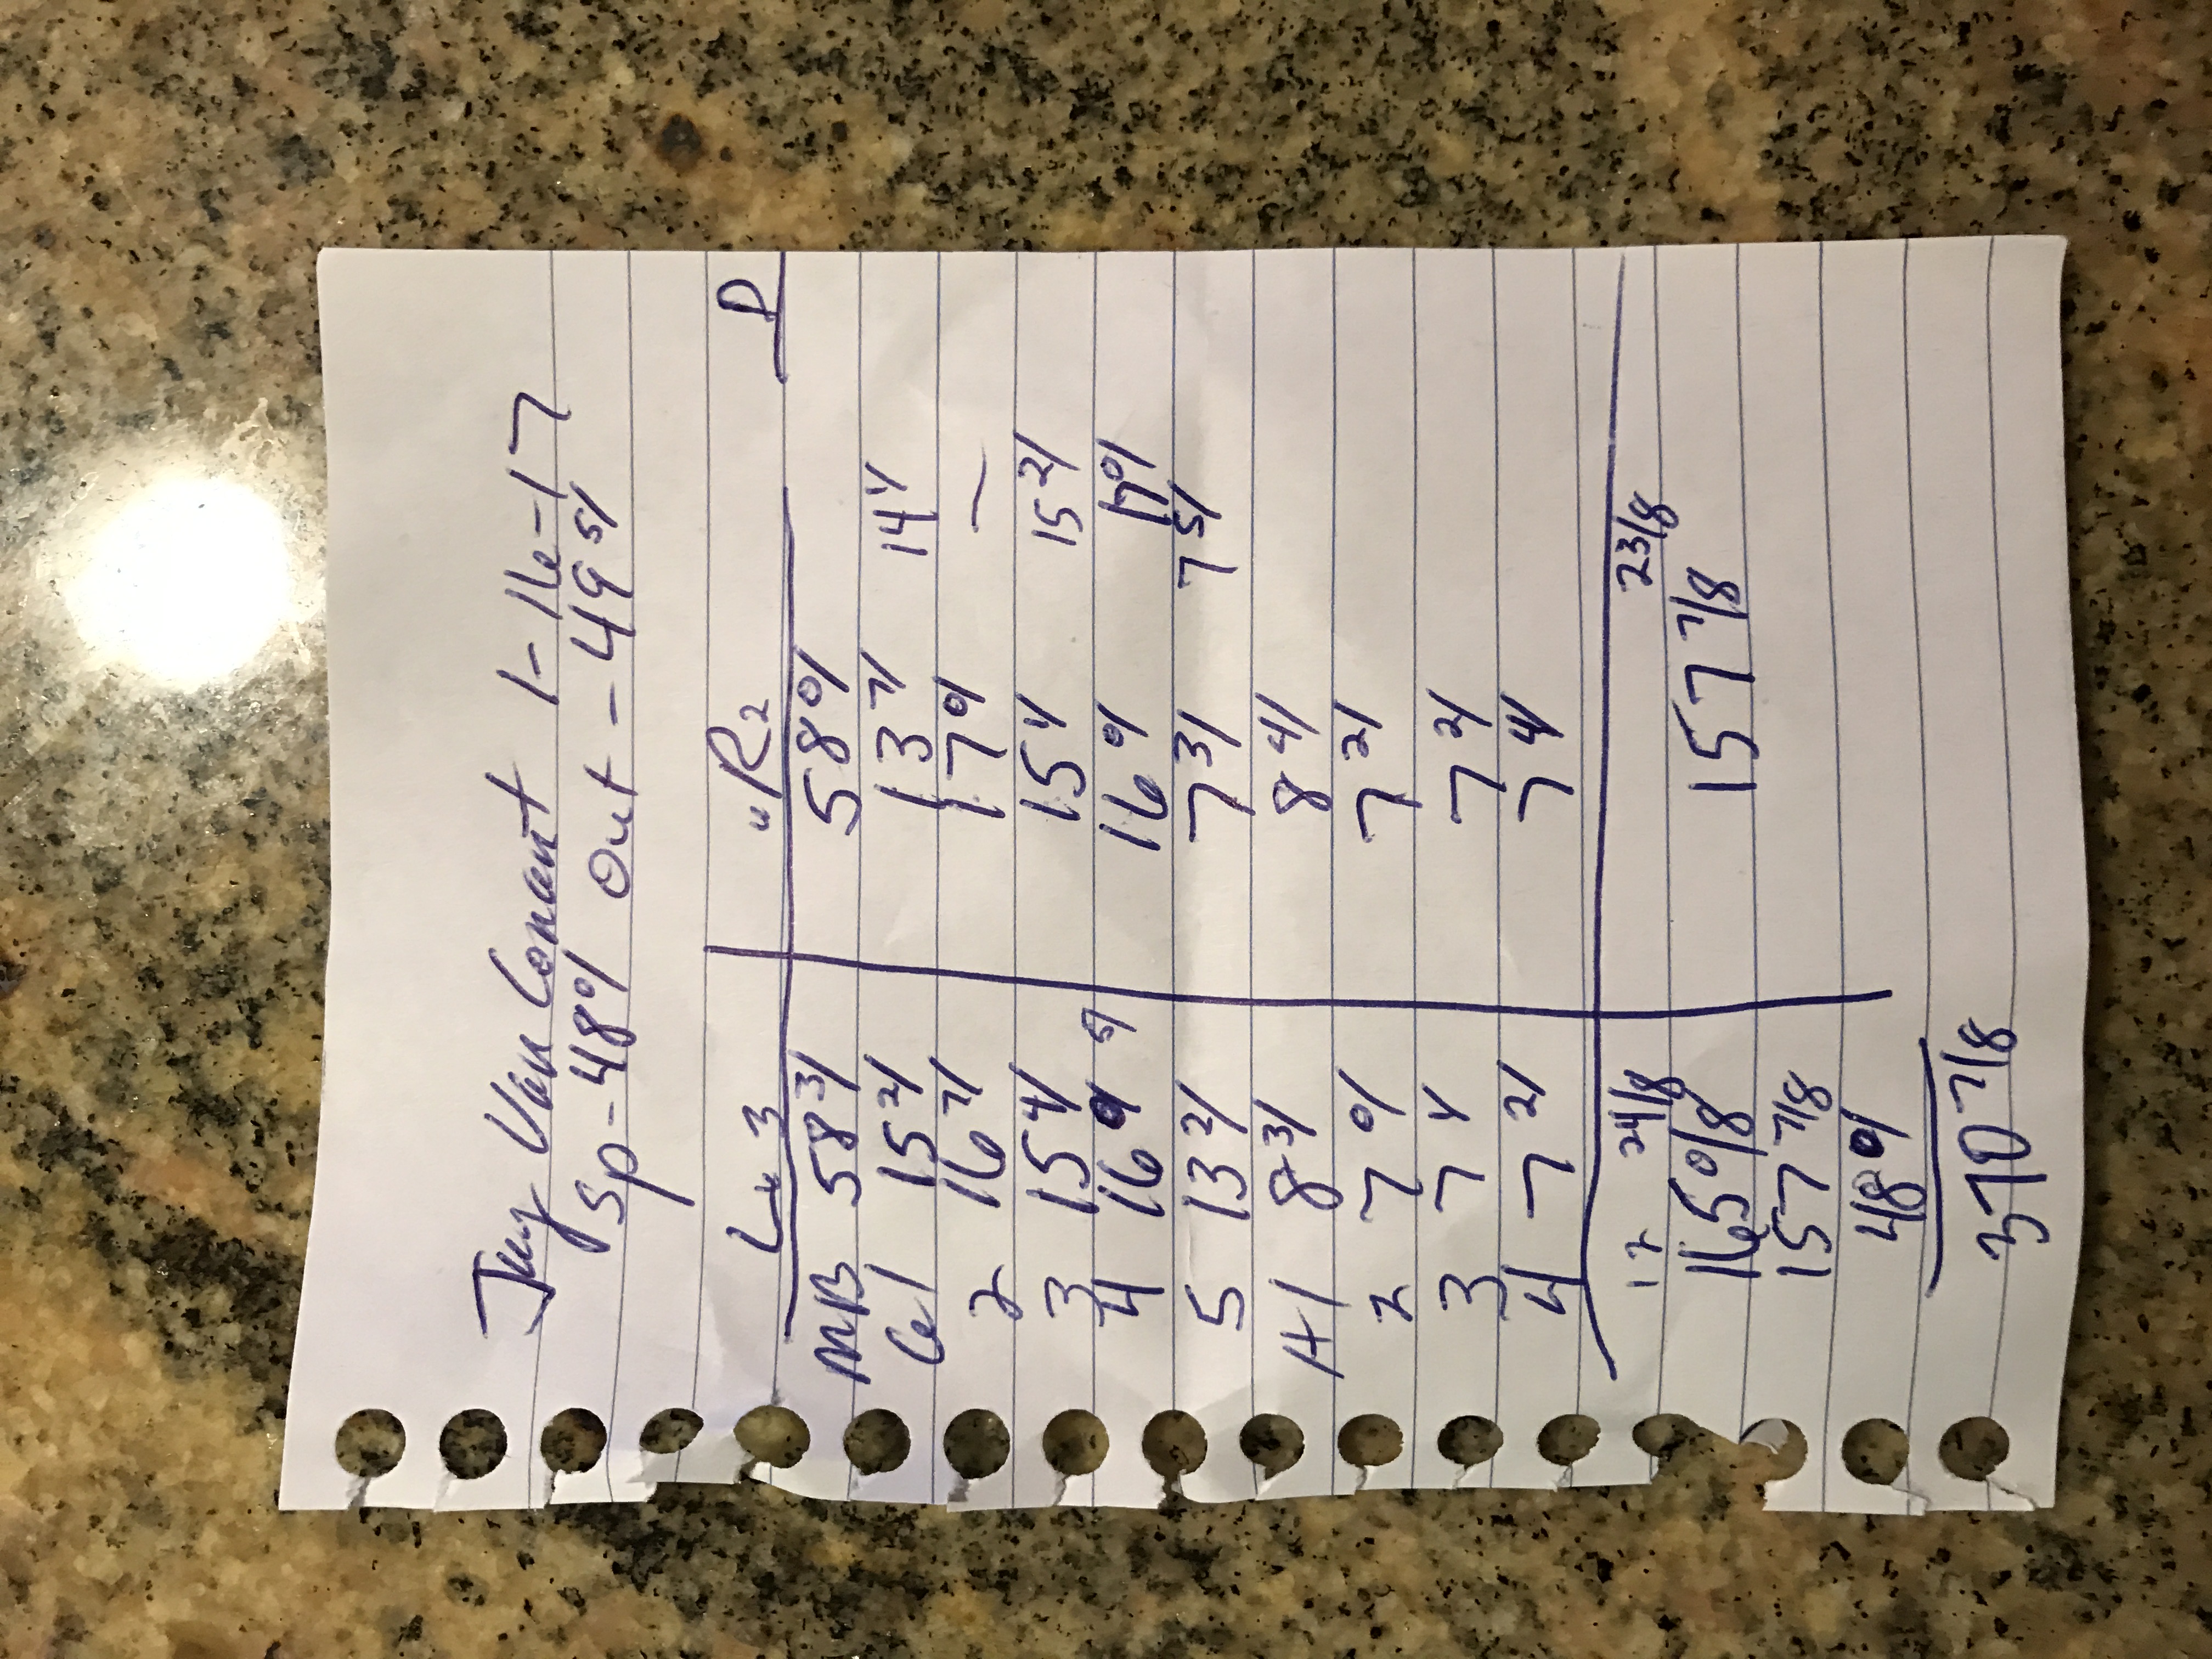 Jerry Van Conant 1-16-17
Sp-48 0/ Out-49 5/
L 3 "R2 D
MB 58 3/ 58 0/
G1 15 2/ 13 7/ 14 1/
2 16 7/ 17 0/ —
3 15 4/ 15 1/ 15 2/
4 16 0/ 5/ 16 0/ 17 0/
5 13 2/ 7 3/ 7 5/
H1 8 3/ 8 4/
2 7 0/ 7 2/
3 7 1/ 7 2/
4 7 2/ 7 4/
17 24/8 23/8
165 0/8 157 7/8
157 7/8
48 0/
370 7/8